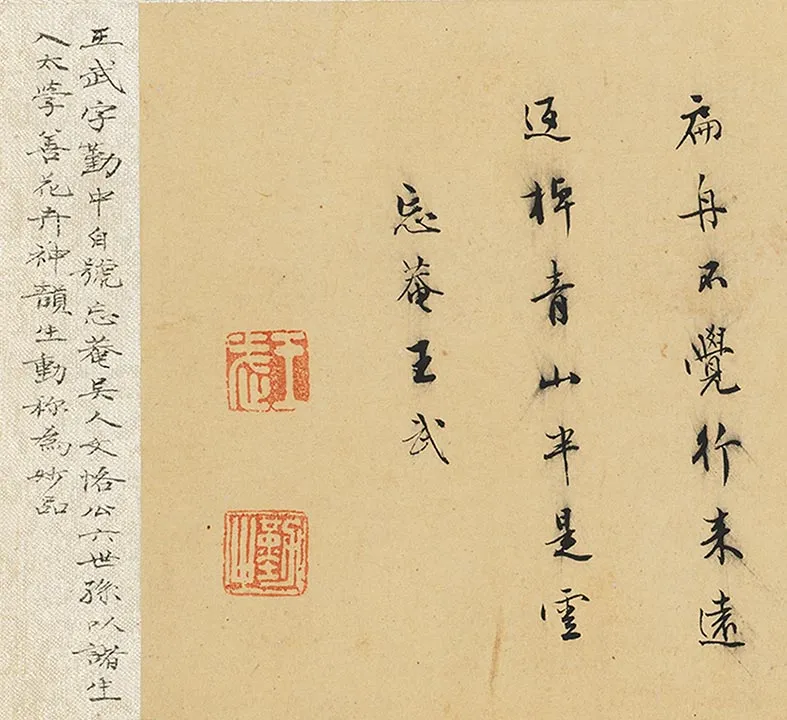 扁舟不覺行来遠
迴棹青山半是雲
忘菴王武
王武
王武字勤中自號忘菴吴人文恪公六世孫以諸生
入太學善花卉神韻生動称為妙品